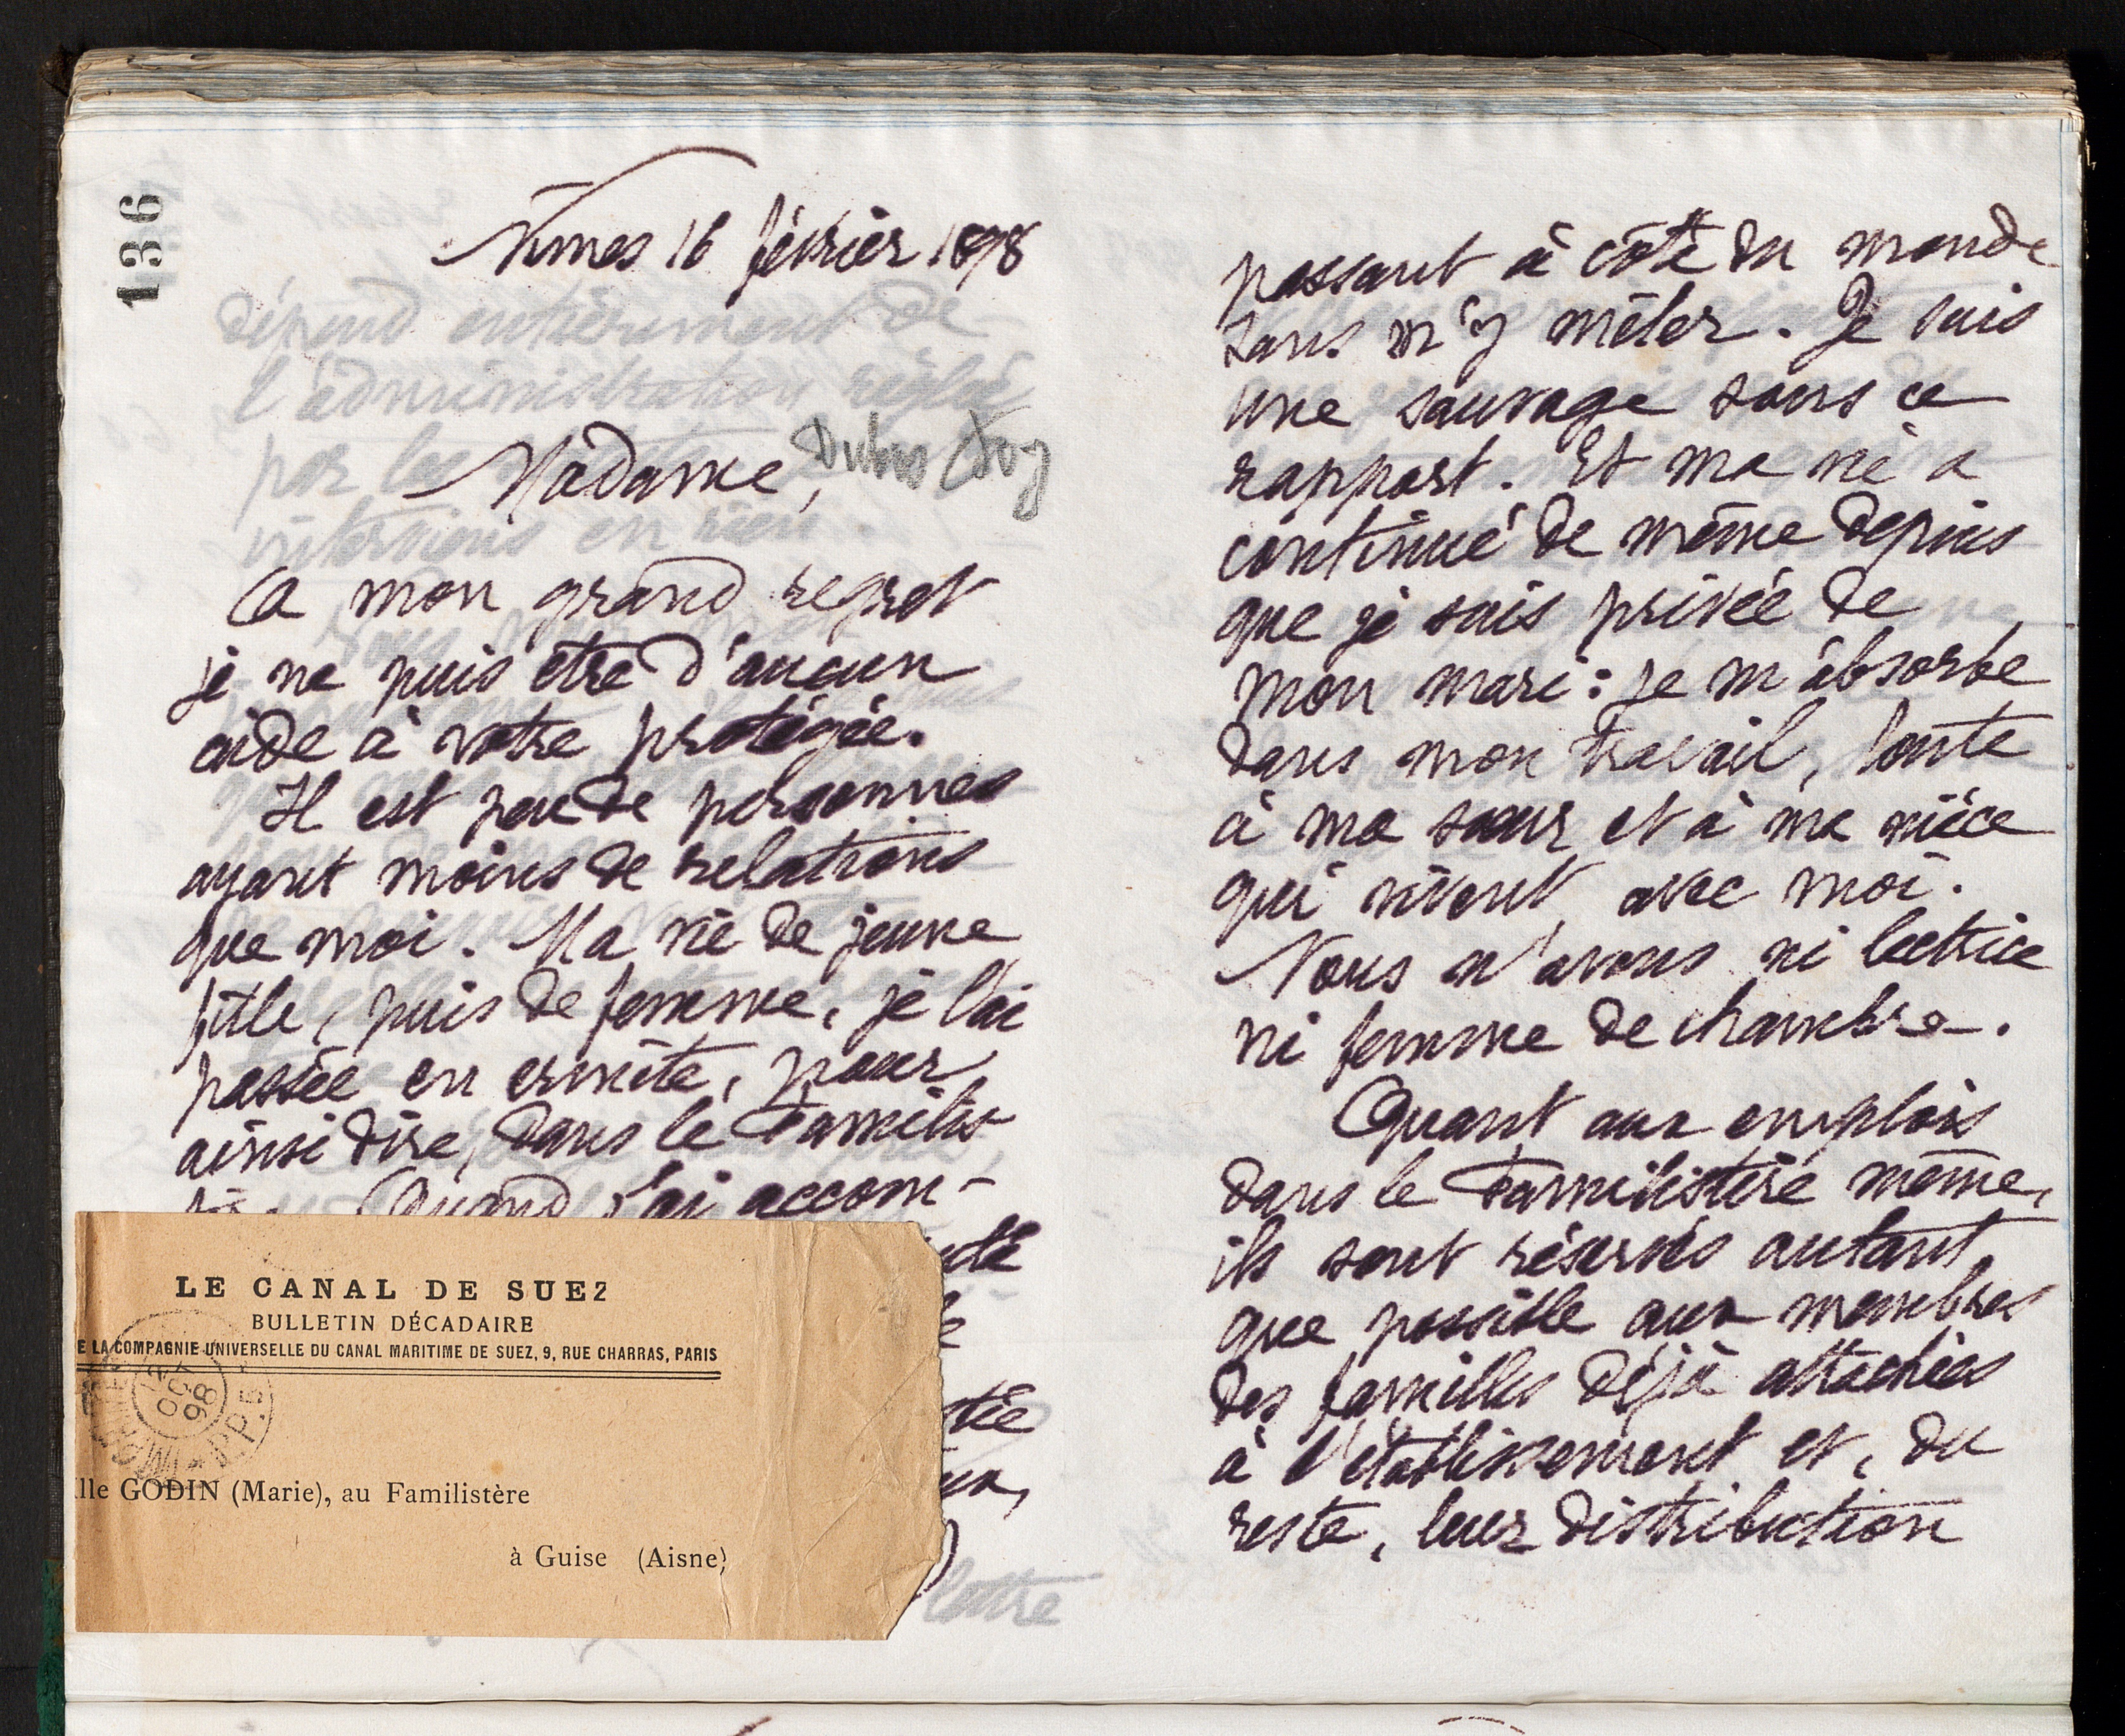 136
Nîmes 16 février 1898
Madame,
A mon grand regret
je ne puis etre d'aucun
aide à votre protégée.
Il est peu de personnes
ayant moins de relations
que moi. Ma vie de jeune
fille, puis de femme, je l'ai
passée en ermite, pour
ainsi dire, dans le Familis-
Quand j'ai accom-
LE CANAL DE SUEZ
BULLETIN DÉCADAIRE
E LA COMPAGNIE UNIVERSELLE DU CANAL MARITIME DE SUEZ, 9, RUE CHARRAS, PARIS
OCT
98
lle GODIN (Marie), au Familistère
à Guise (Aisne)
lettre
dépend entièrement de
l'administration réglée
par les
intervions en rien.
passant à côté du monde
sans m'y mêler. Je suis
une sauvage sous ce
rapport. Et ma vie a
continué de même depuis
que je suis privée de
mon mari : je m'absorbe
dans mon travail, toute
à ma sœur et à ma nièce
qui vivent avec moi.
Nous n'avons ni lectrice
ni femme de chambre.
Quant aux emplois
dans le Familistère même,
ils sont réservés autant
que possible aux membres
des familles déjà attachées
à l'établissement et, du
reste, leur distribution